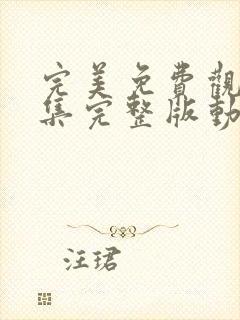 完美免費觀
集完整版動
汪珺